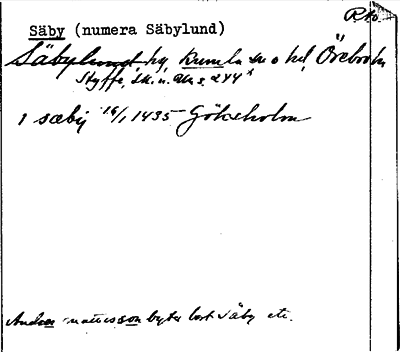 RAp.
Säby (numera Säbylund)
Säbylund hg, Kumla sn o hd, Örebro län
Styffe, Sk. u. Un. s. 244
i sæby 16/1 1435 Gökeholm
Andres mattisson byter bort Säby etc.